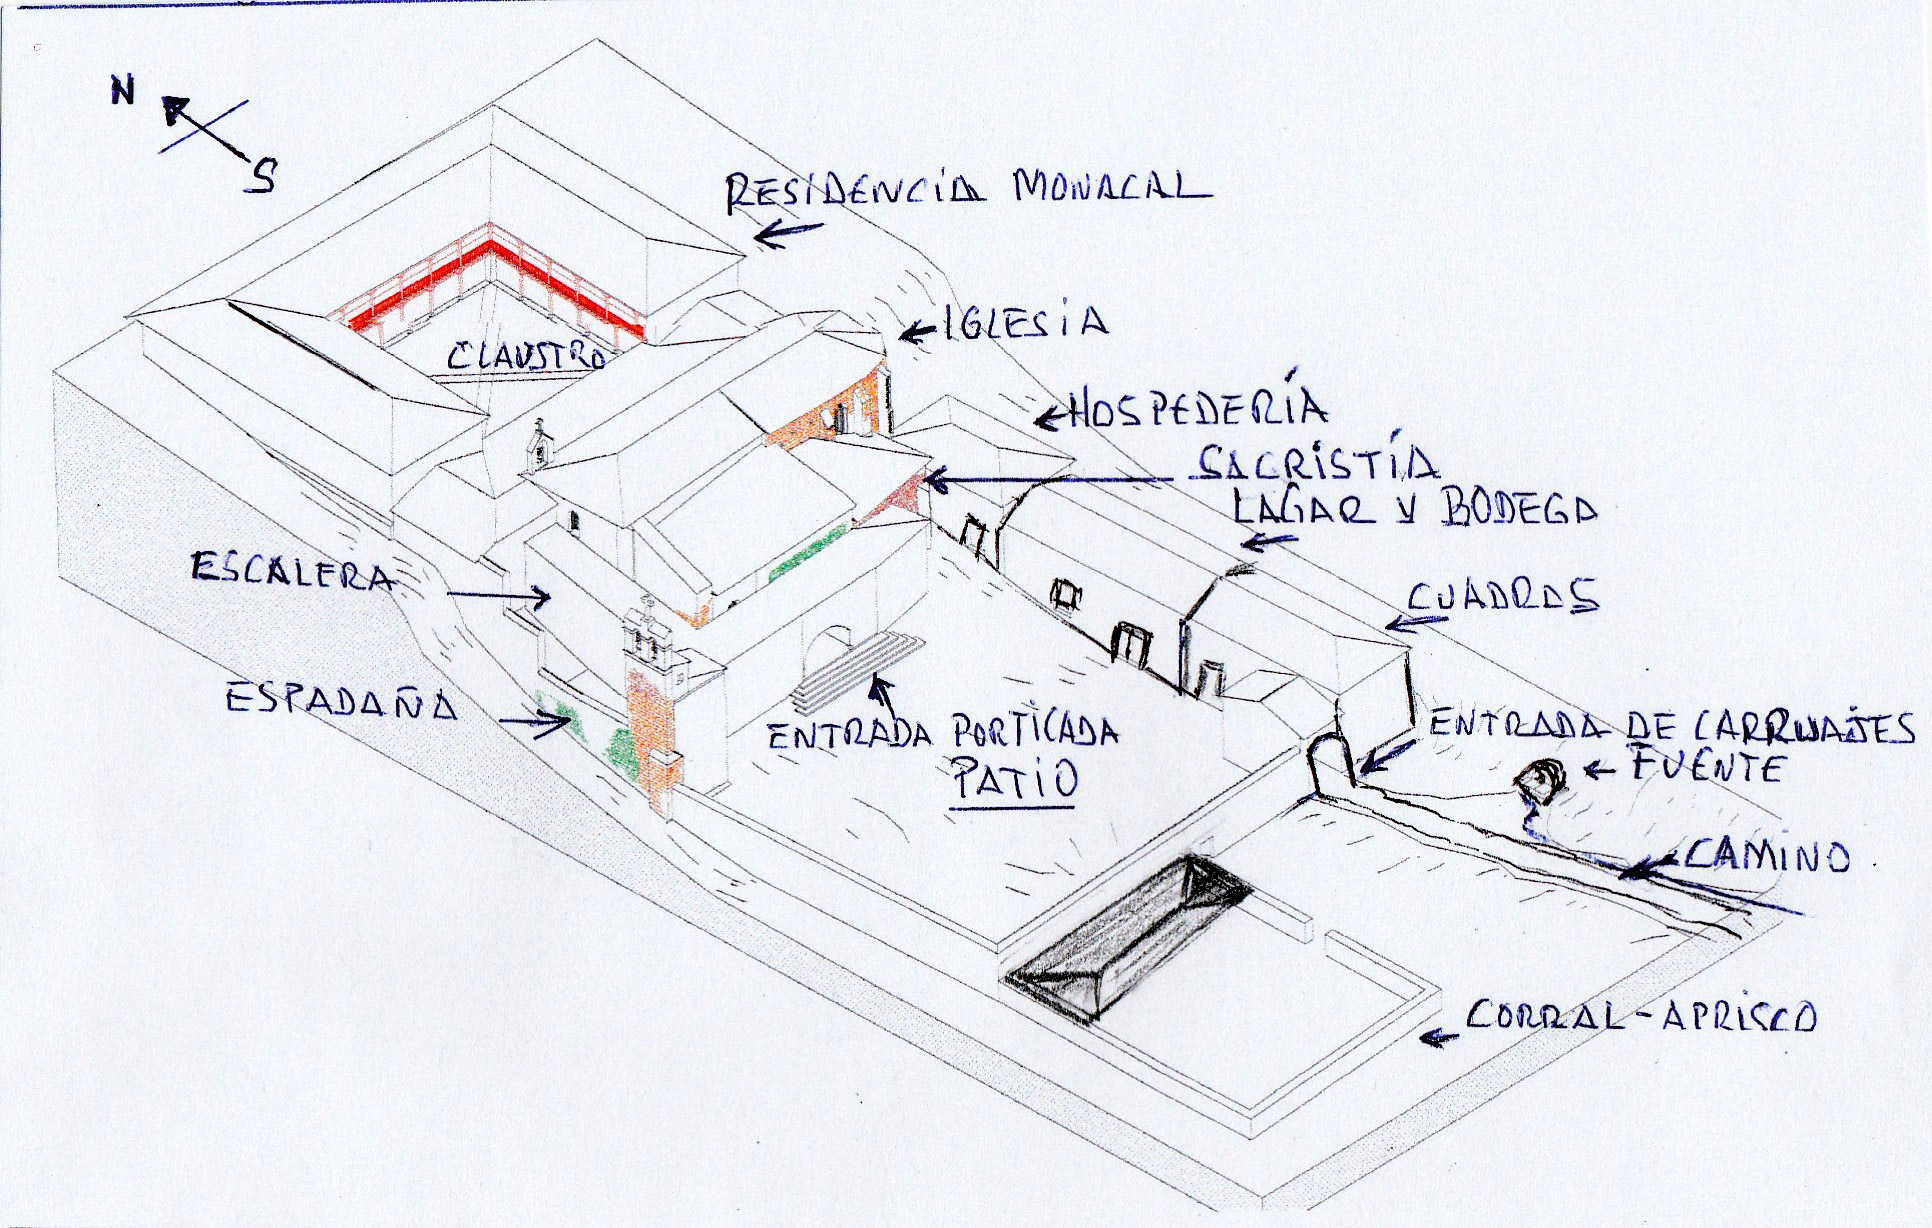 N
S
RESIDENCIA MONACAL
IGLESIA
CLAUSTRO
HOSPEDERÍA
SACRISTÍA
LAGAR Y BODEGA
ESCALERA
CUADRAS
ESPADAÑA
ENTRADA PORTICADA
PATIO
ENTRADA DE CARRUAJES
FUENTE
CAMINO
CORRAL-APRISCO